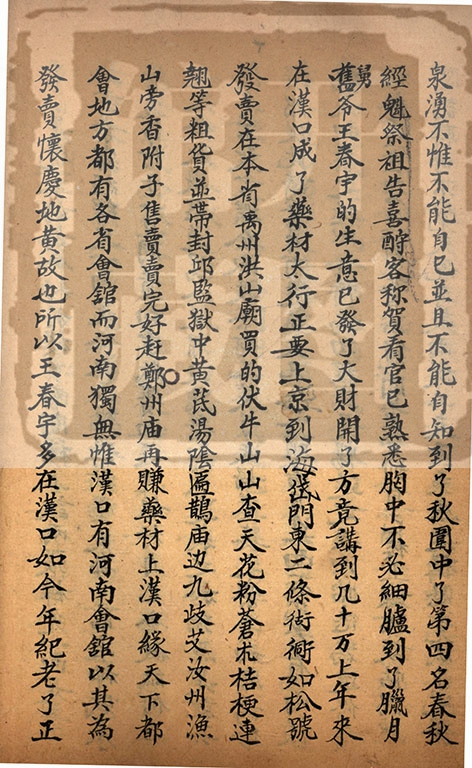 泉湧不惟不能自已並且不能自知到了秋圍中了第四名春秋
經魁祭祖告喜酧客称賀看官已熟悉胸中不必細臚到了臘月
舅
舊爷王春宇的生意已發了大財開了方竟講到几十万上年來
在漢口成了藥材大行正要上京到海岱門東二條衚衕如松號
發賣在本省禹州洪山廟買的伏牛山山查天花粉蒼朮桔梗連
翹等粗货並帶封邱監獄中黄芪湯陰匾鵲庙边九歧艾汝州漁
山旁香附子售賣賣完好赶鄭州庙再賺藥材上漢口緣天下都
會地方都有各省會舘而河南獨無惟漢口有河南會舘以其為
發賣懷慶地黄故也所以王春宇多在漢口如今年紀老了正